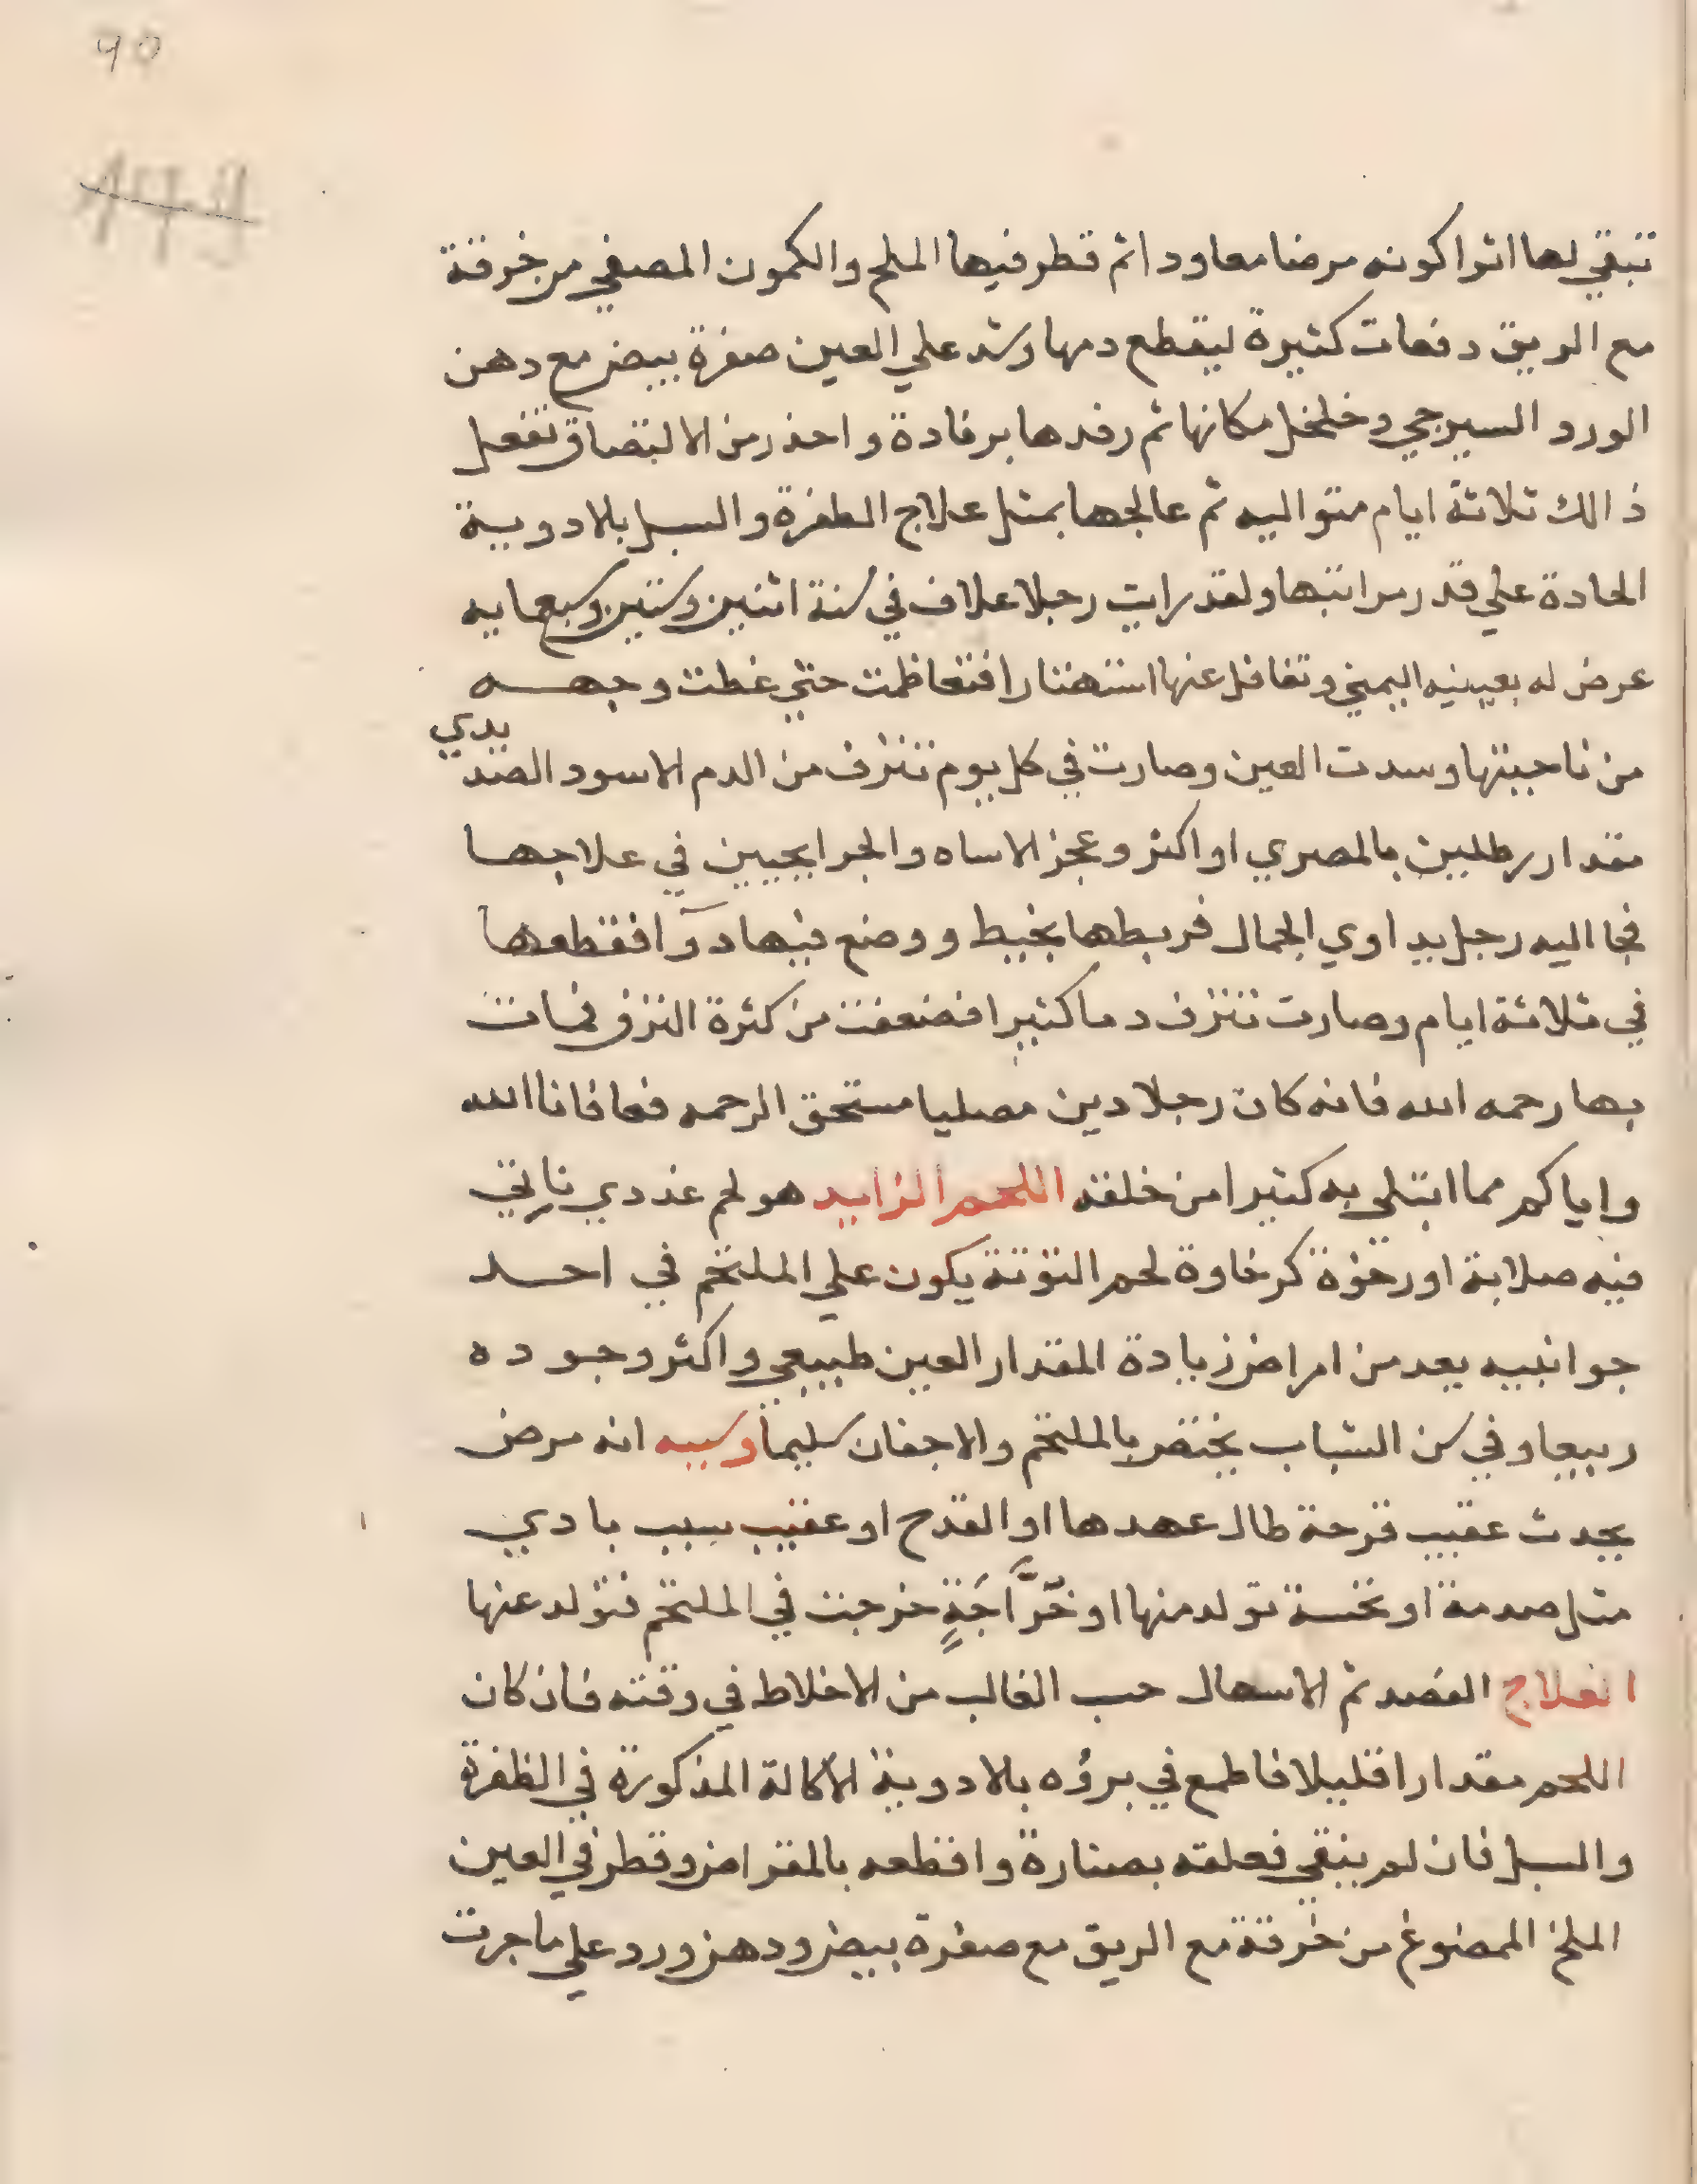 ٩٥
تبقي لها اثرا كونه مرضا معاودا ثم قطر فيها الملح والكمون المصفي من خرقة
مع الريق دفعات كثيرة ليقطع دمها وشد علي العين صفرة بيض مع دهن
الورد السيرجي وخلخل مكانها ثم رفدها برفادة واحذر من الالتصاق تفعل
ذالك ثلاثة ايام متواليه ثم عالجها بمثل علاج الظفرة والسبل بالادوية
الحادة علي قدر مراتبها ولقد رايت رجلا علاف في سنة اثنين وستين وسبعمايه
عرض له بعينيه اليمني وتغافل عنها استهتارا فتعاظمت حتي غطت وجهه
من ناحيتها وسدت العين وصارت في كل يوم تنزف من الدم الاسود الصديدي
مقدار رطلين بالمصري او اكثر وعجز الاساه والجرايحيين في علاجها
فجا اليه رجل يداوي الجمال فربطها بخيط ووضع فيها دوآ فقطعها
في ثلاثة ايام وصارت تنزف دما كثيرا فضعفت من كثرة النزف فمات
بها رحمه الله فانه كان رجلا دين مصليا مستحق الرحمه فعافانا الله
واياكم مما ابتلي به كثيرا من خلقه اللحم الزايد هو لحم غددي ناتي
فيه صلابة او رخوة كرخاوة لحم التوتة يكون علي الملتحم في احد
جوانبيه يعد من امراض زيادة المقدار العين طبيعي واكثر وجوده
ربيعا وفي سن الشباب يختص بالملتحم والاجفان سليما وسببه انه مرض
يحدث عقيب قرحة طال عهدها او القدح او عقيب سبب بادي
مثل صدمة او نخسة تولد منها او خَرَّاجَةٍ خرجت في الملتحم فتولد عنها
العلاج الفصد ثم الاسهال حسب الغالب من الاخلاط في وقته فان كان
اللحم مقدارا قليلا فاطمع في برؤه بالادوية الاكالة المذكورة في الظفرة
والسبل فان لم ينقي فعلقه بصنارة واقطعه بالمقراض وقطر في العين
الملح الممضوغ من خرقة مع الريق مع صفرة بيض ودهن ورد علي ما جرت